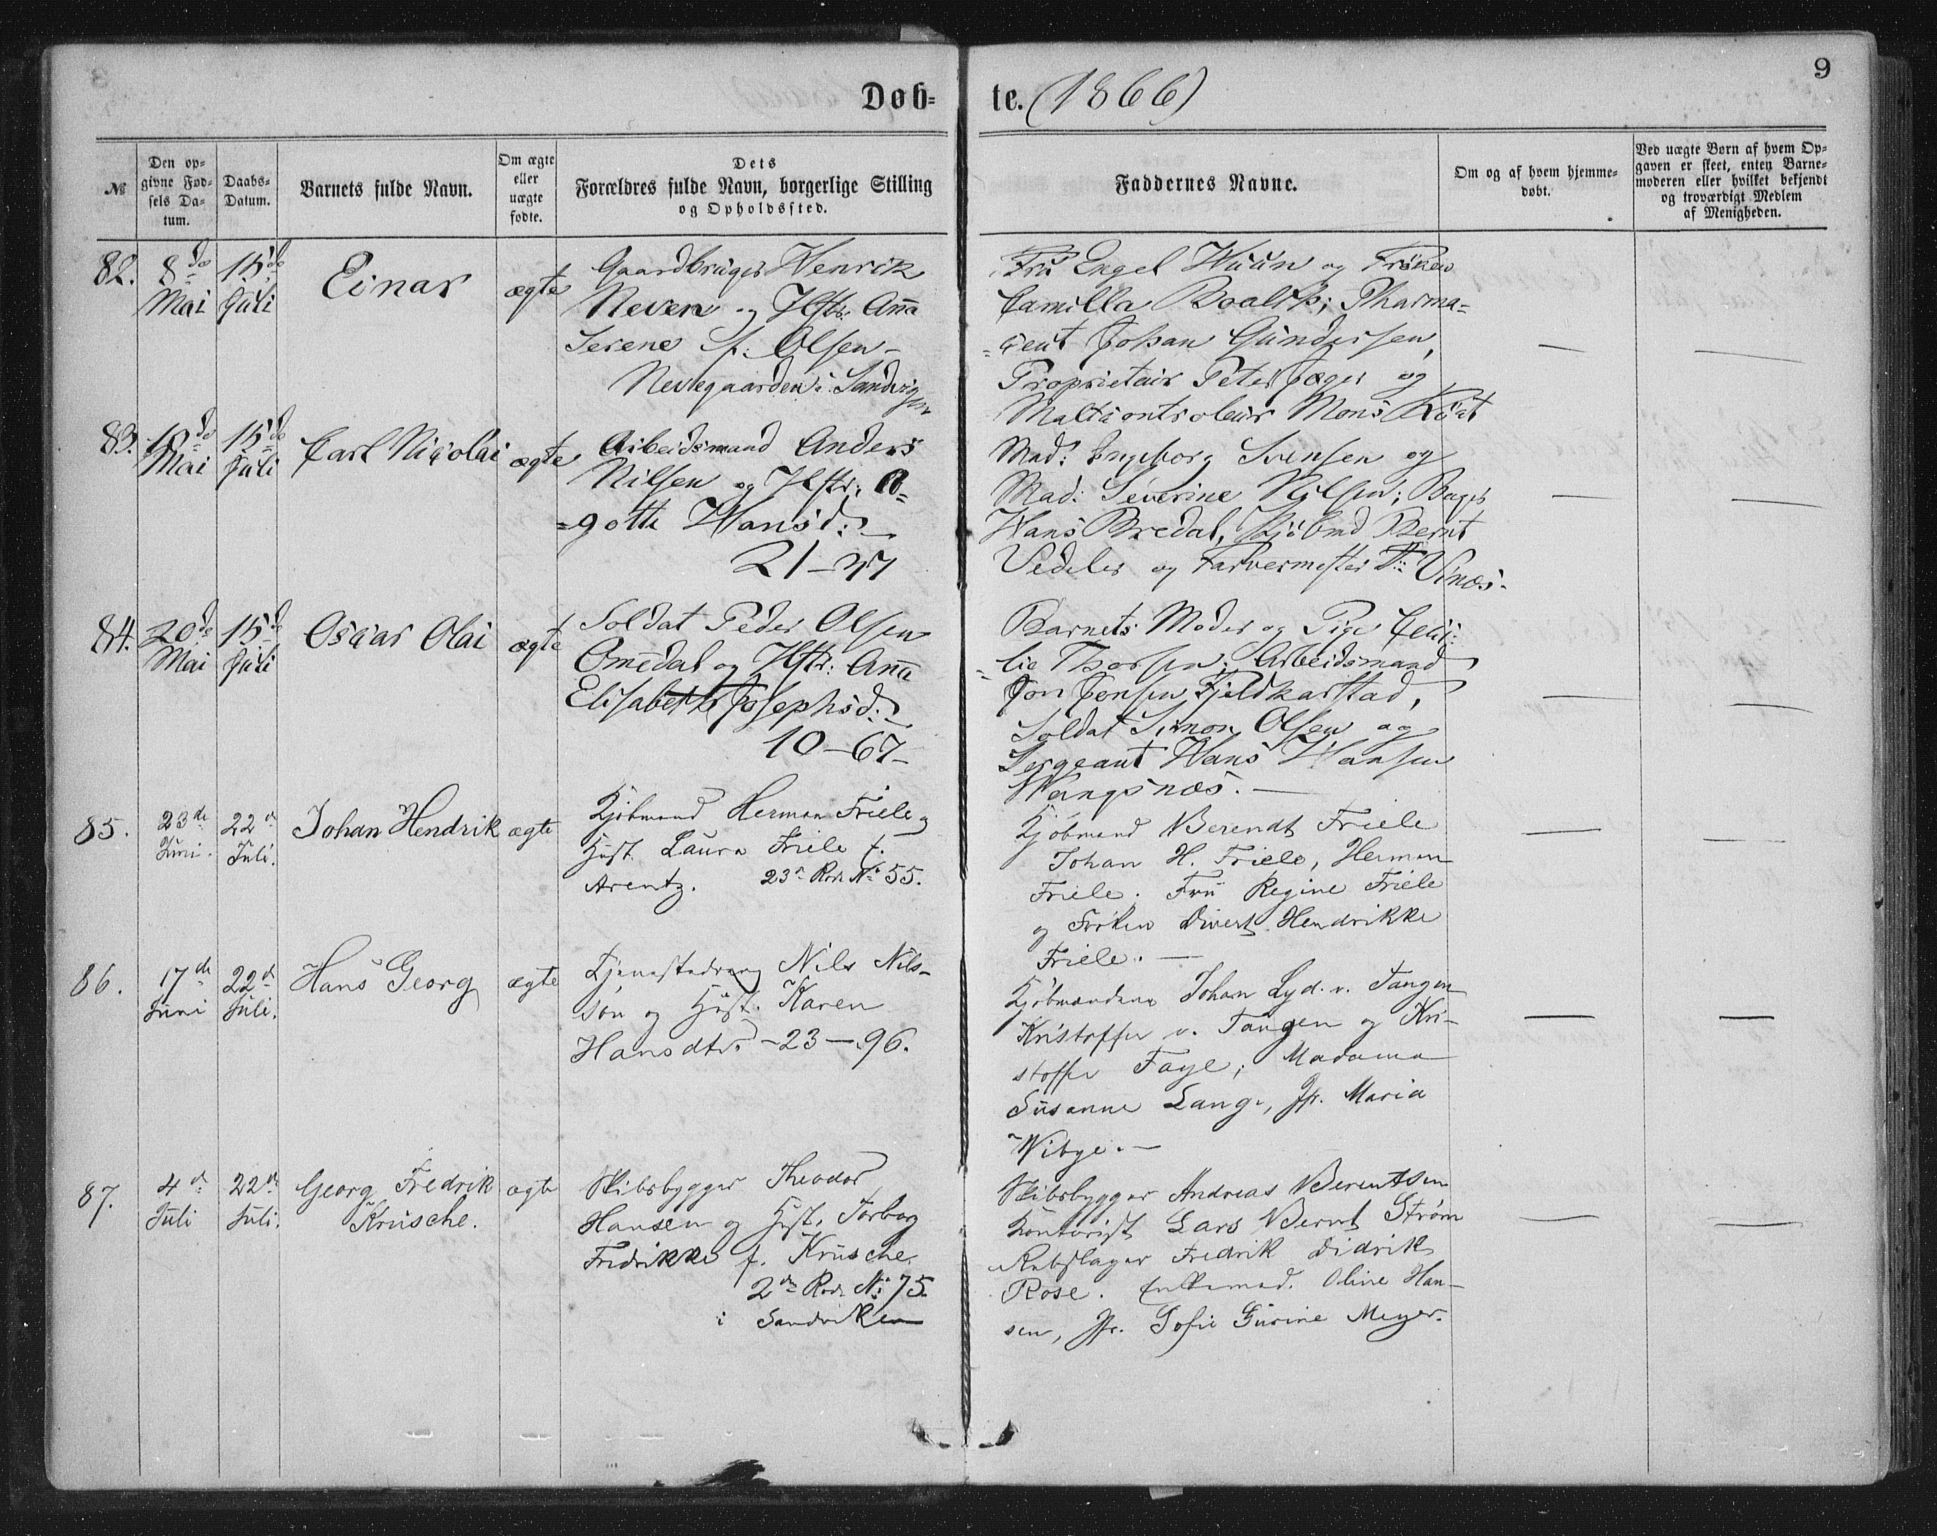 Døb=
te. (1866)
9
№
Den op=
givne Fød=
sels Da=
tum.
Daabs=
Datum.
Barnets fulde Navn.
Om ægte
eller
uægte
fødte.
Dets
Forældres fulde Navn, borgerlige Stilling
og Opholdssted.
Faddernes Navne.
Om og af hvem hjemme=
døbt.
Ved uægte Børn af hvem Op=
gaven er skeet, enten Barne=
moderen eller hvilket bekjendt
og troværdigt Medlem
af Menigheden.
82.
8de
Mai
15de
Juli
Einar
ægte
Gaardbruger Henrik
Neven og Hstr: Anna
Serene f: Olsen -
Nevegaarden i Sandvigen
Fru Engel Wuun og Frøken
Camilla Boalth; Pharma=
=ceut Johan Gundersen,
Proprietair Peter Jæger og
Maltcontroleur Mons
83.
Mai
15de
Juli
Carl Nicolai
ægte
Arbeidsmand Anders
Nilsen og Hstr:
=gotte Hansd: -
21-47
Mad: Ingeborg Svensen og
Mad: Severine Nilsen; Bager
Hans Bredal, Kjøbmd Bernt
Vedeler og Farvermester
84.
20de
Mai
15de
Juli
Oscar Olai
ægte
Soldat Peder Olsen
Omedal og Hstr: Anna
Elisabeth Josephsd: -
10-67-
Barnets Moder og Pige Ceci:
=lie Thorsen; Arbeidsmand
Jon Jensen Fjeldkarstad,
Soldat Simon Olsen og
Sergeant Hans Hansen
Wangsnæs. -
85.
23de
Juni.
22d
Juli.
Johan Hendrik
ægte
Kjøbmand Herman Friele og
Hust. Laura Friele f.
Arentz. 23d Rode No 55.
Kjøbmænd Berendt Friele
Johan H. Friele, Herman
Friele. Fru Regine Friele
og Frøken Divert Hendrikke
Friele. -
86.
17de
Juni
22d
Juli.
Hans Georg
ægte
Tjenestedreng Nils Nils-
son og Hust. Karen
Hansdtr. -23-96.
Kjøbmændene Johan Lyd. v. Tangen
Kristoffer v. Tangen og Kri-
stoffer Faye; Madame
Susanne Lange, Jfr. Maria
Wibye. -
87.
4d
Juli
22de
Juli.
Georg Fredrik
Krüsche.
ægte
Skibsbygger Theodor
Hansen og Hust. Torborg
Fredrikke f. Krüsche
2den Rode No 75.
i Sandviken
Skibsbygger Andreas Berentsen
Kontorist Lars Bernt Strøm
Rebslager Fredrik Didrik
Rose. Enkemad. Oline Han-
sen, Jfr. Sofie Gurine Meyer.